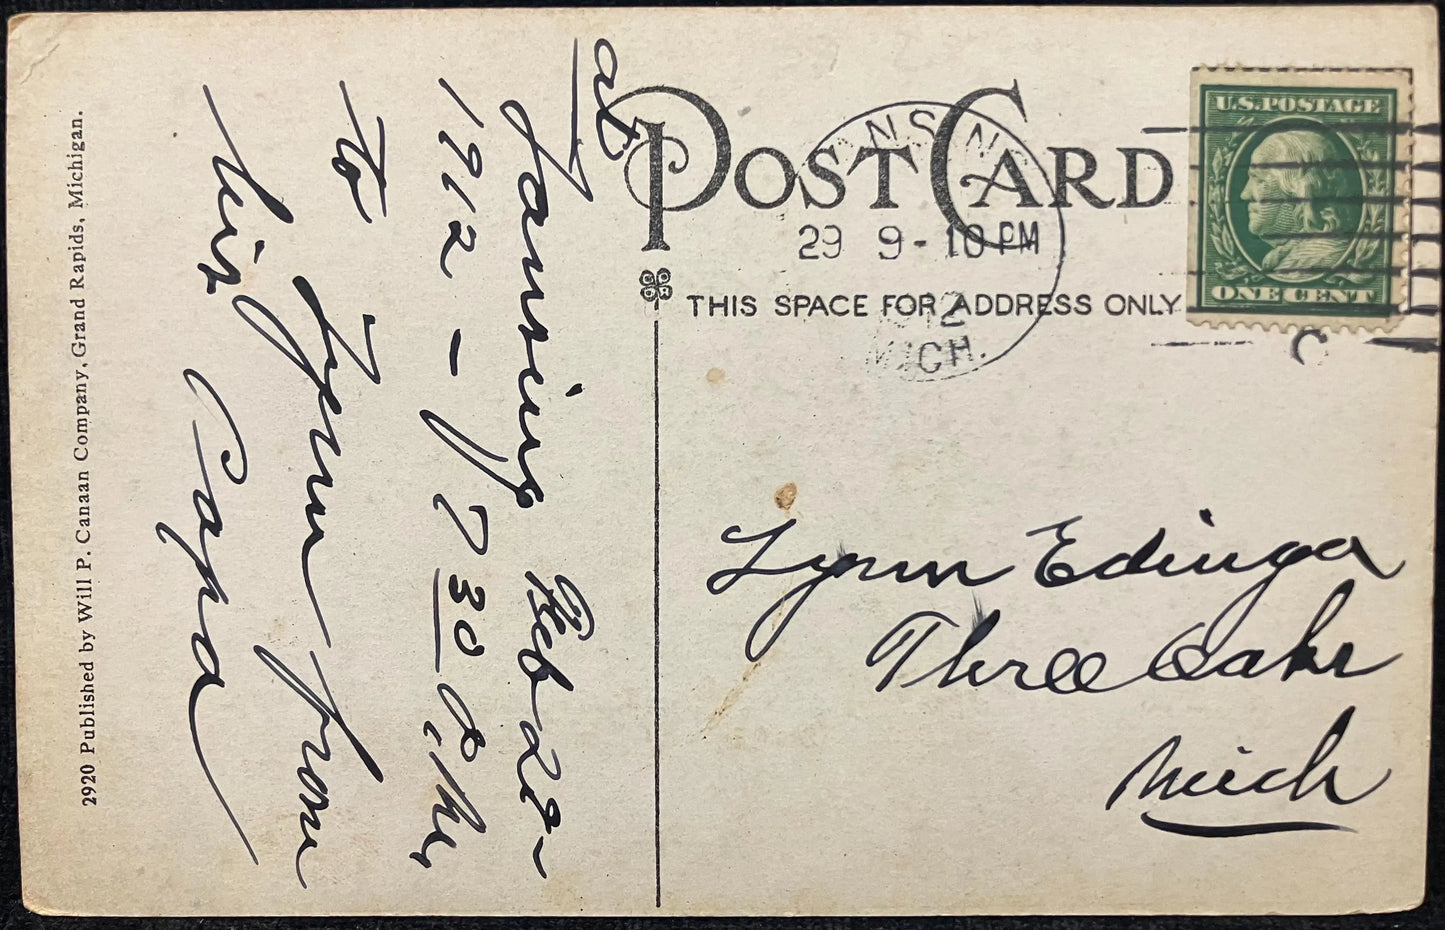 POST CARD
THIS SPACE FOR ADDRESS ONLY
U.S. POSTAGE
ONE CENT
ANSING
29 9-10 PM
1912
MICH.
at
Lansing Feb 29-
1912 - 7 30 P.M.
To Lynn from
his Papa
Lynn Edinger
Three Oaks
Mich
2920 Published by Will P. Canaan Company, Grand Rapids, Michigan.